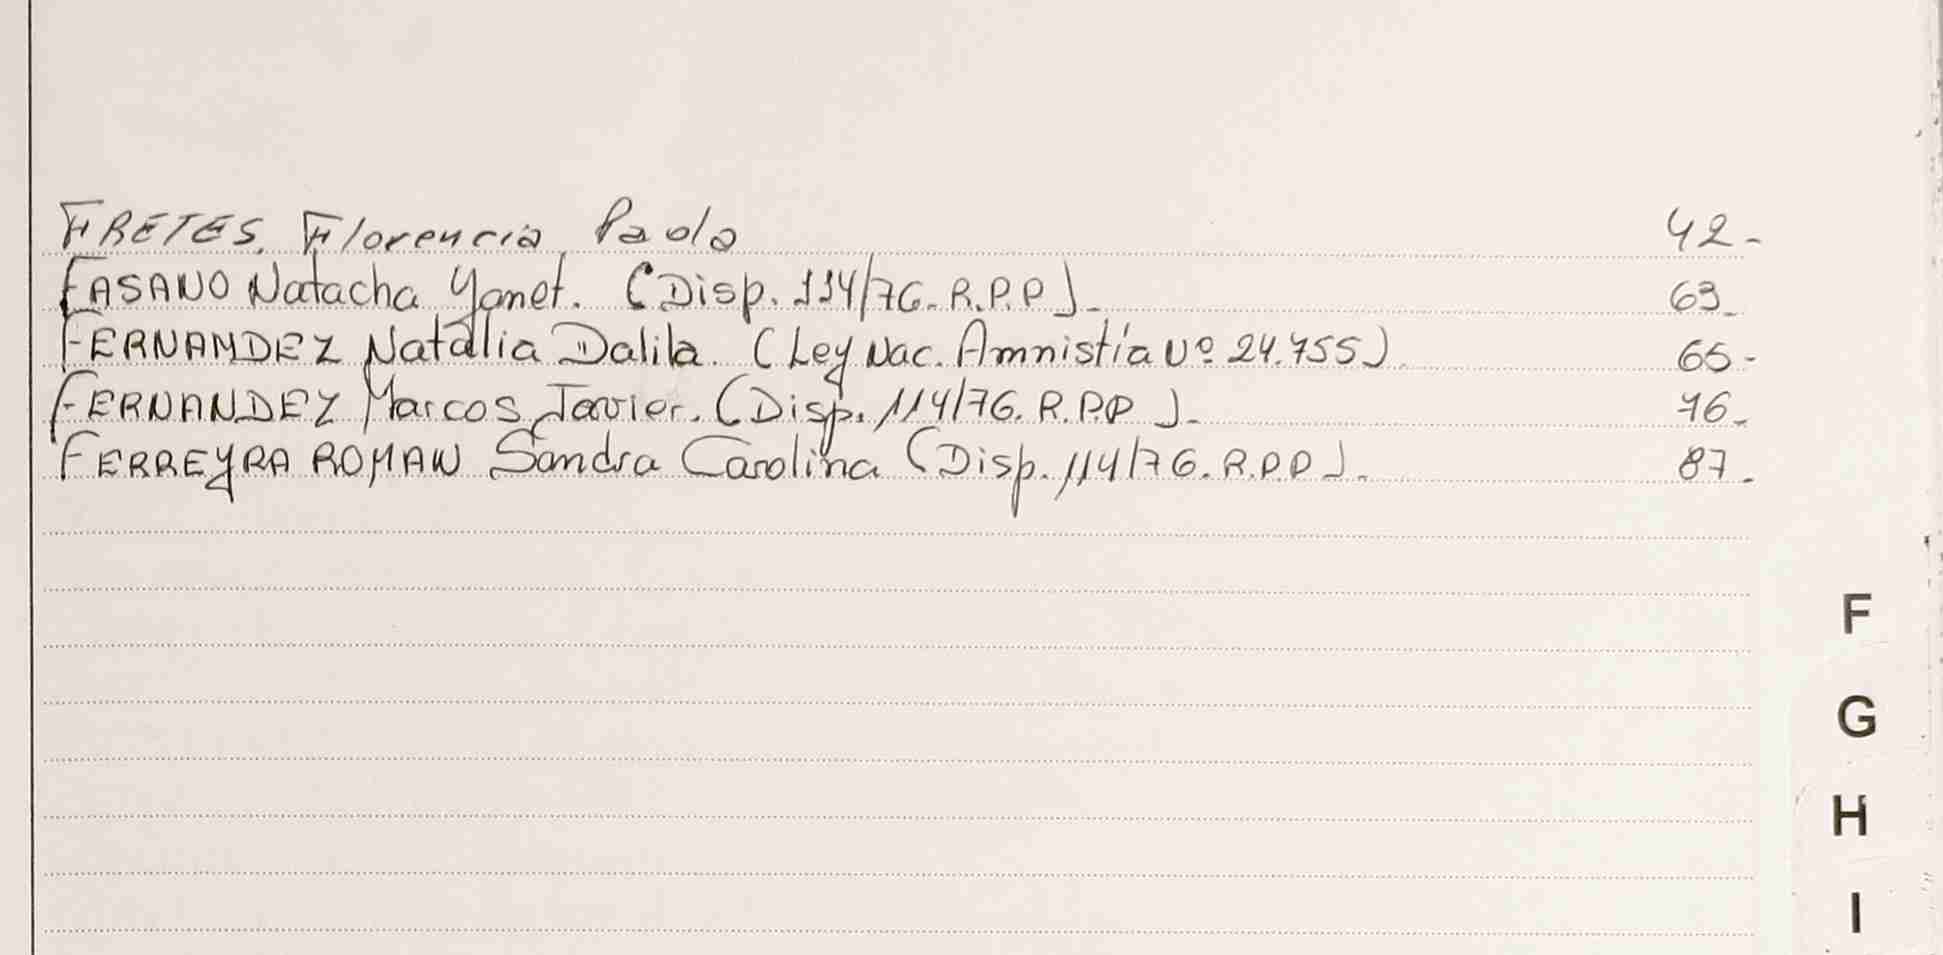 FRETES, Florencia Paola 42-
FASANO Natacha Yanet. (Disp. 114/76-R.P.P)- 63-
FERNANDEZ Natalia Dalila. (Ley Nac. Amnistía Nº 24.755) 65-
FERNANDEZ Marcos Javier. (Disp. 114/76. R.P.P )- 76-
FERREYRA ROMAN Sandra Carolina (Disp. 114/76. R.P.P)- 87-
F
G
H
I